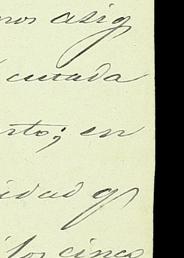 nos asig
curada
rto; en
idad q
los cinco